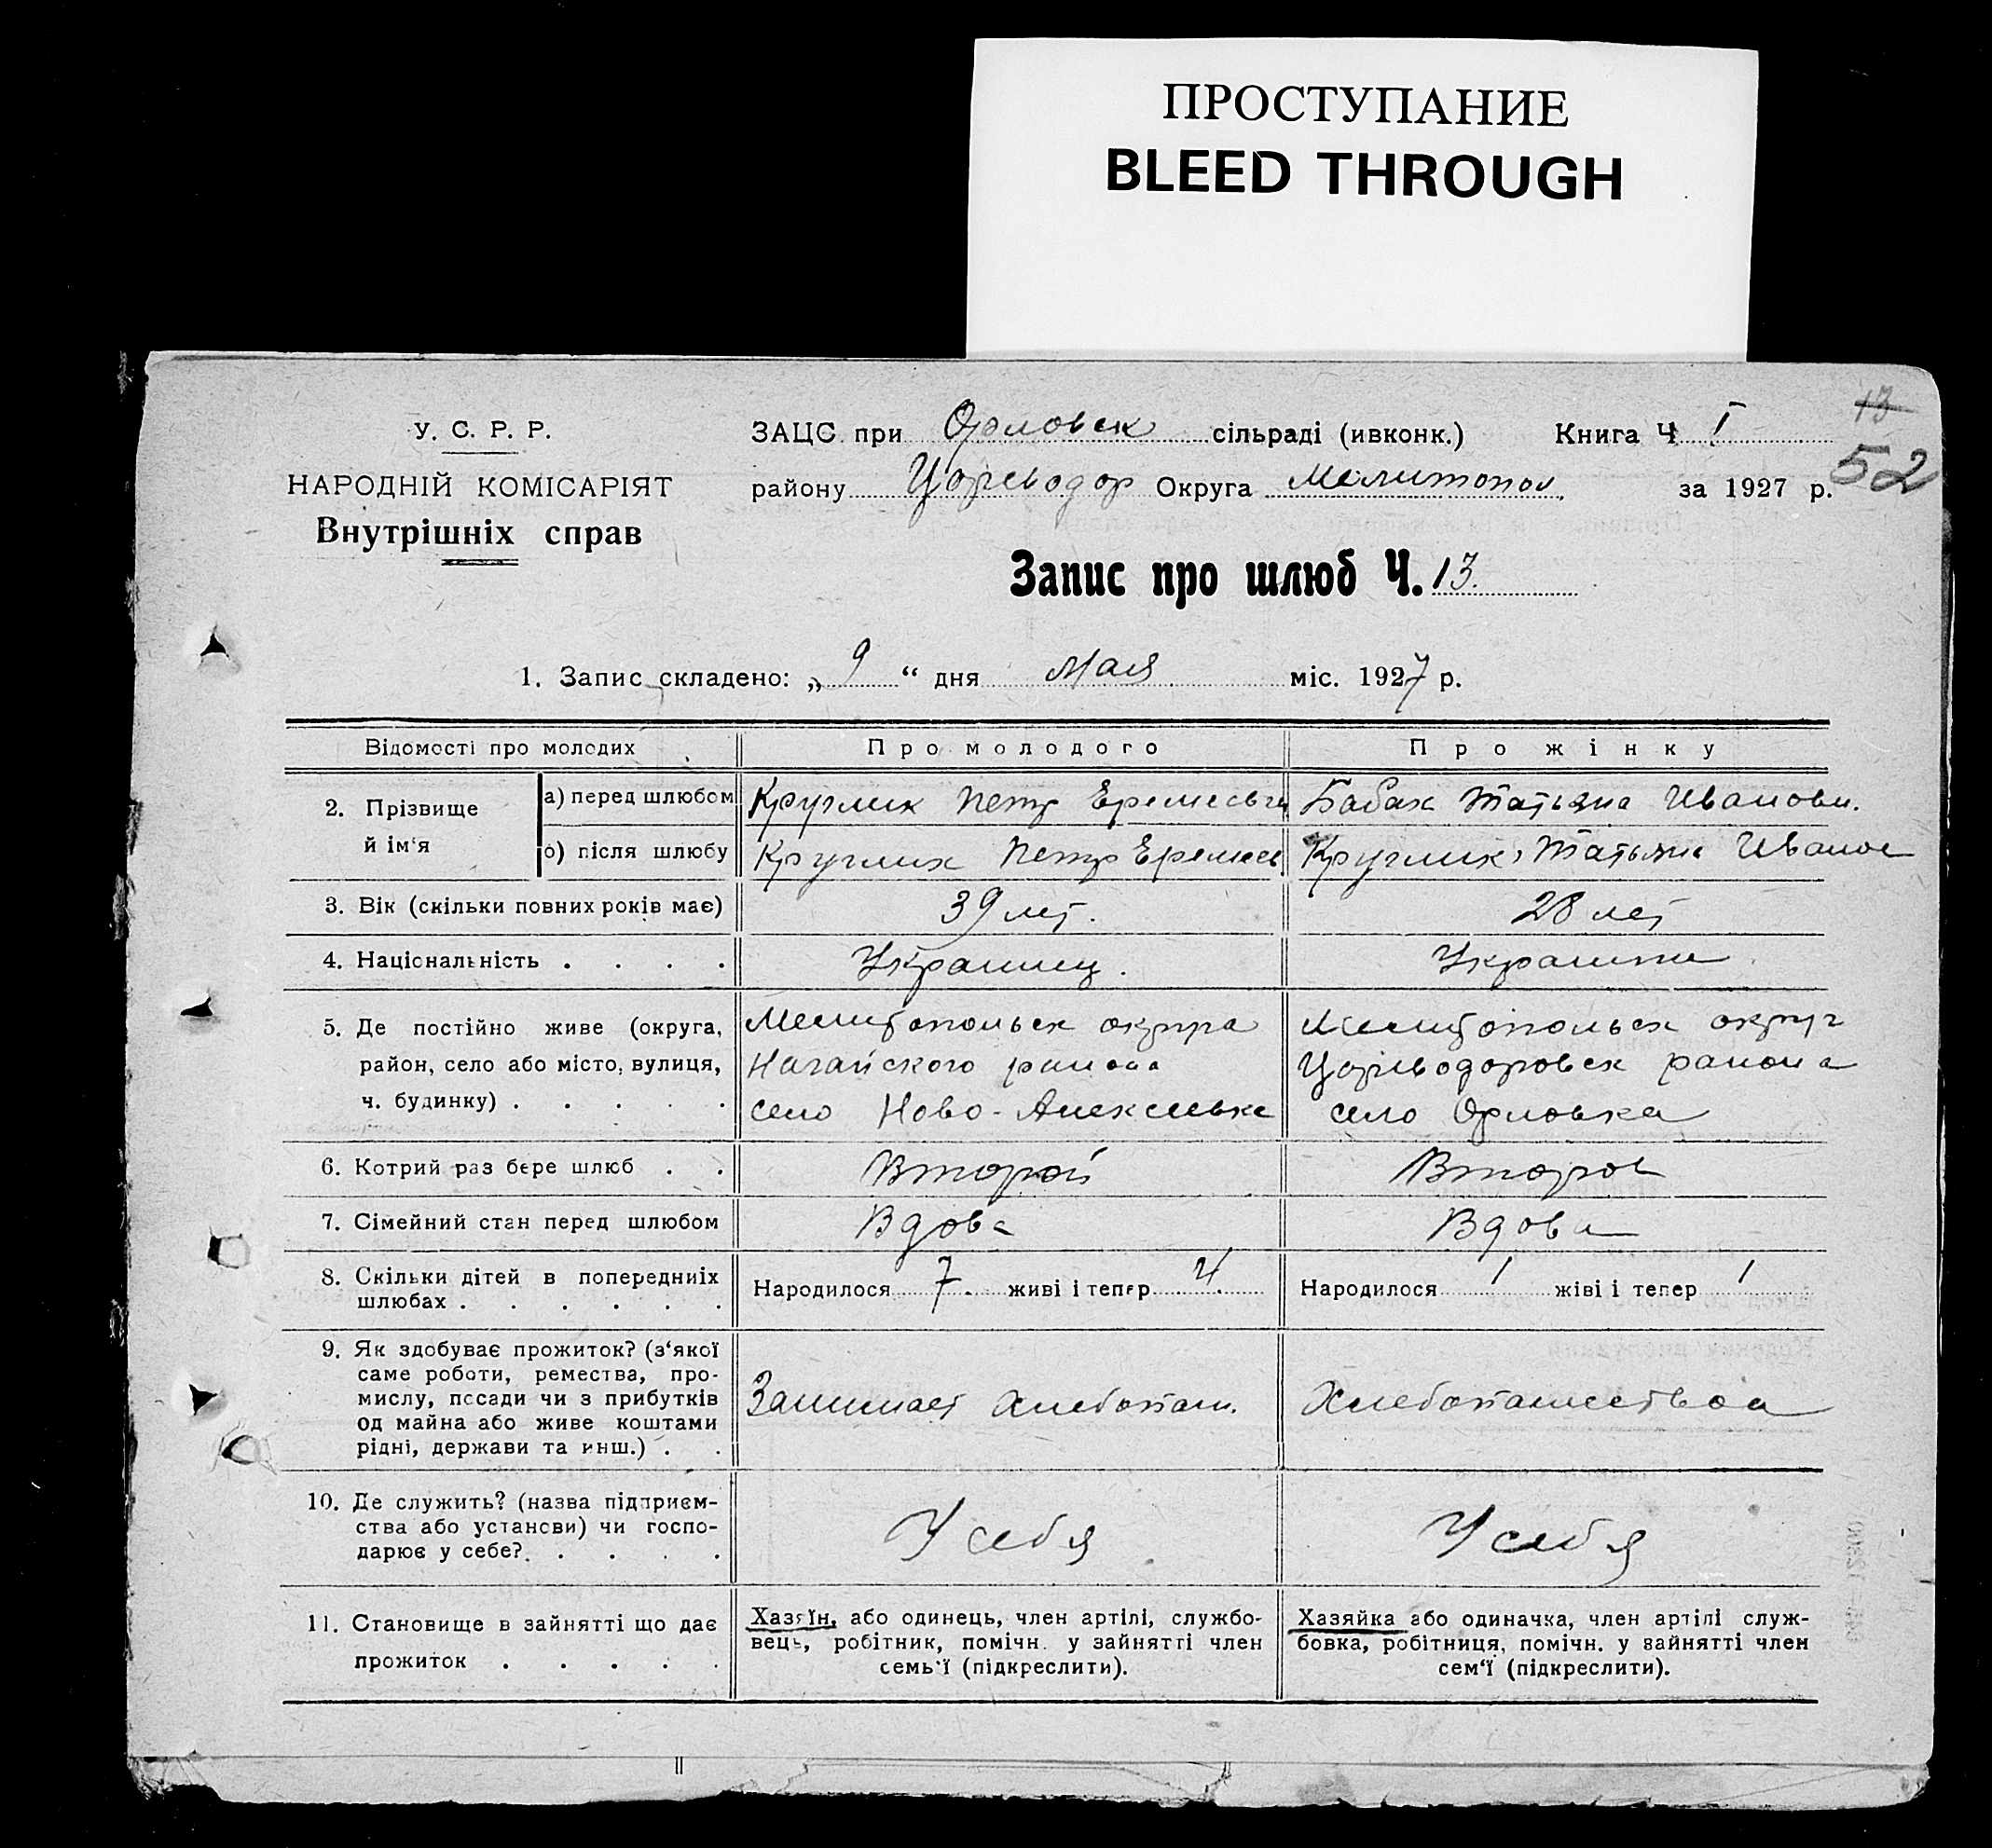 ПРОСТУПАНИЕ
BLEED THROUGH
13
52
У. С. Р. Р.
НАРОДНІЙ КОМІСАРІЯТ
Внутрішніх справ
ЗАЦС при Орловск сільраді (ивконк.) Книга Ч I
району Округа Мелитопол. за 1927 р.
Запис про шлюб Ч. 13.
1. Запис складено: „9“ дня Мая міс. 1927 р.
Відомості про молодих Про молодого Про жінку
2. Прізвище й ім‘я
а) перед шлюбом Круглик Петр Еремеевич Бабак Татьяна Иванови.
б) після шлюбу Круглик Петр Еремеев Круглик Татьяна Иванов
3. Вік (скільки повних років має) 39 лет. 28 лет
4. Національність . . . . Украинец. Украинка
5. Де постійно живе (округа, Мелитопольск округа Мелитопольск округ
район, село або місто, вулиця, Нагайского района Цареводаровск района
ч. будинку) . . . . . село Ново-Алексеевка село Орловка
6. Котрий раз бере шлюб . . Второй Второй
7. Сімейний стан перед шлюбом Вдова Вдова
8. Скільки дітей в попередниіх Народилося 7. живі і тепер 4. Народилося 1 жіві і тепер 1
шлюбах . . . . . .
9. Як здобуває прожиток? (з‘якої
саме роботи, ремества, про-
мислу, посади чи з прибутків Занимает хлебопаш. Хлебопашества
од майна або живе коштами
рідні, держави та инш.) . .
10. Де служить? (назва підприєм-
ства або установи) чи госпо- У себя У себя
дарює у себе?. . . . .
11. Становище в зайнятті що дає Хазяїн, або одинець, член артілі, службо- Хазяйка або одиначка, член артілі служ-
прожиток . . . . . вець, робітник, помічн. у зайнятті член бовка, робітниця, помічн. у зайнятті член
семь‘ї (підкреслити). сем‘ї (підкреслити).